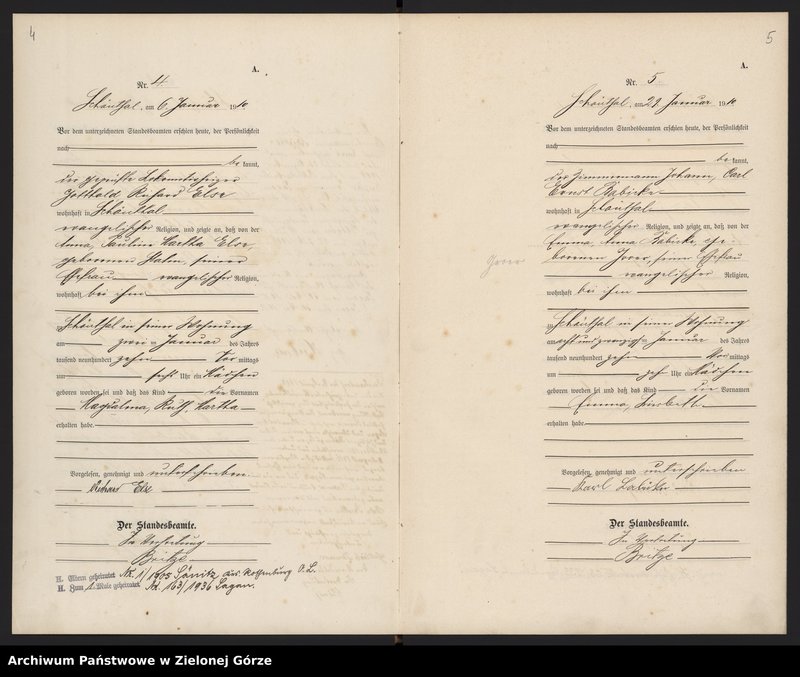 4
A.
Nr. 4.
Schönthal, am 6. Januar 1910.
Vor dem unterzeichneten Standesbeamten erschien heute, der Persönlichkeit
nach
be kannt,
der geprüfte Lokomotivheizer
Gotthold Richard Else
wohnhaft in Schönthal
evangelischer Religion, und zeigte an, daß von der
Anna, Pauline Martha Else,
geborenen Hahn, seiner
Ehefrau evangelischer Religion,
wohnhaft bei ihm
zu Schönthal in seiner Wohnung
am zwei Januar des Jahres
tausend neunhundert zehn Vor mittags
um sechs Uhr ein Mädchen
geboren worden sei und daß das Kind die Vornamen
Magdalena, Ruth, Martha
erhalten habe.
Vorgelesen, genehmigt und unterschrieben.
Richard Else
Der Standesbeamte.
In Vertretung
Britze
H. Eltern geheiratet Nr. 1/1905 Sänitz, Krs. Rothenburg O.L.
H. Zum 1. Male geheiratet Nr. 163/1936 Sagan.
5
A.
Nr. 5.
Schönthal, am 29. Januar 1910.
Vor dem unterzeichneten Standesbeamten erschien heute, der Persönlichkeit
nach
be kannt,
der Zimmermann Johann, Carl
Ernst
wohnhaft in Schönthal
evangelischer Religion, und zeigte an, daß von der
Emma, Anna ge-
borenen seiner Ehefrau
evangelischer Religion,
wohnhaft bei ihm
zu Schönthal in seiner Wohnung
am acht und zwanzig Januar des Jahres
tausend neunhundert zehn Vor mittags
um zehn Uhr ein Mädchen
geboren worden sei und daß das Kind die Vornamen
Emma, Lisbeth
erhalten habe.
Vorgelesen, genehmigt und unterschrieben
Karl
Der Standesbeamte.
In Vertretung
Britze
Archiwum Państwowe w Zielonej Górze